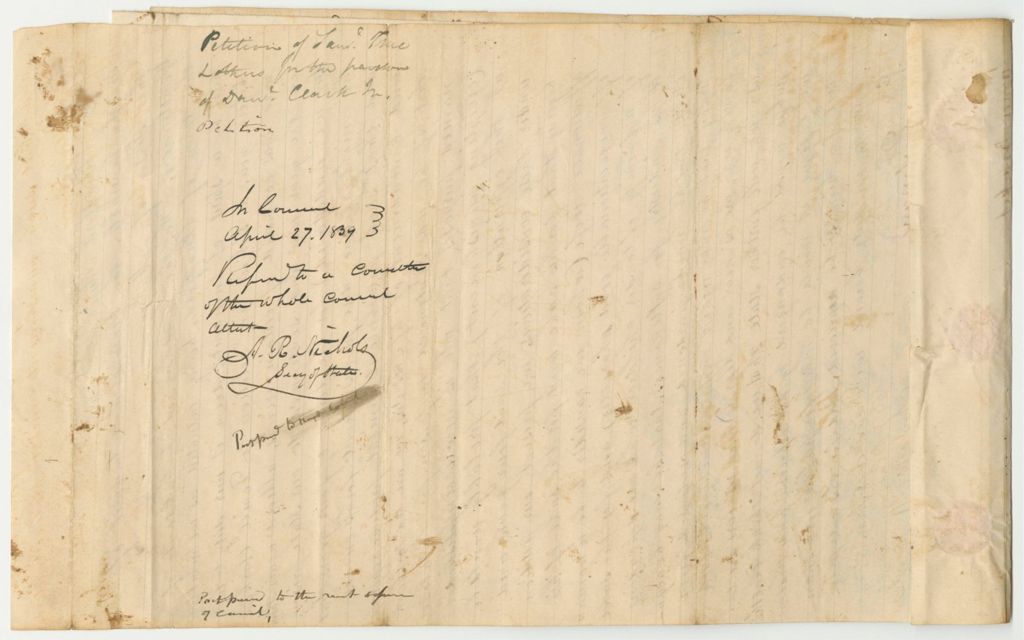 Petition of Saml.
& others for the pardon
of Danl. Clark Jr.
Petition
In Council
April 27. 1839
Referred to a Committee
of the whole Council
Attest
A. R. Nichols
Secy of State.
Postponed to next
Postponed to the next session
of Council,